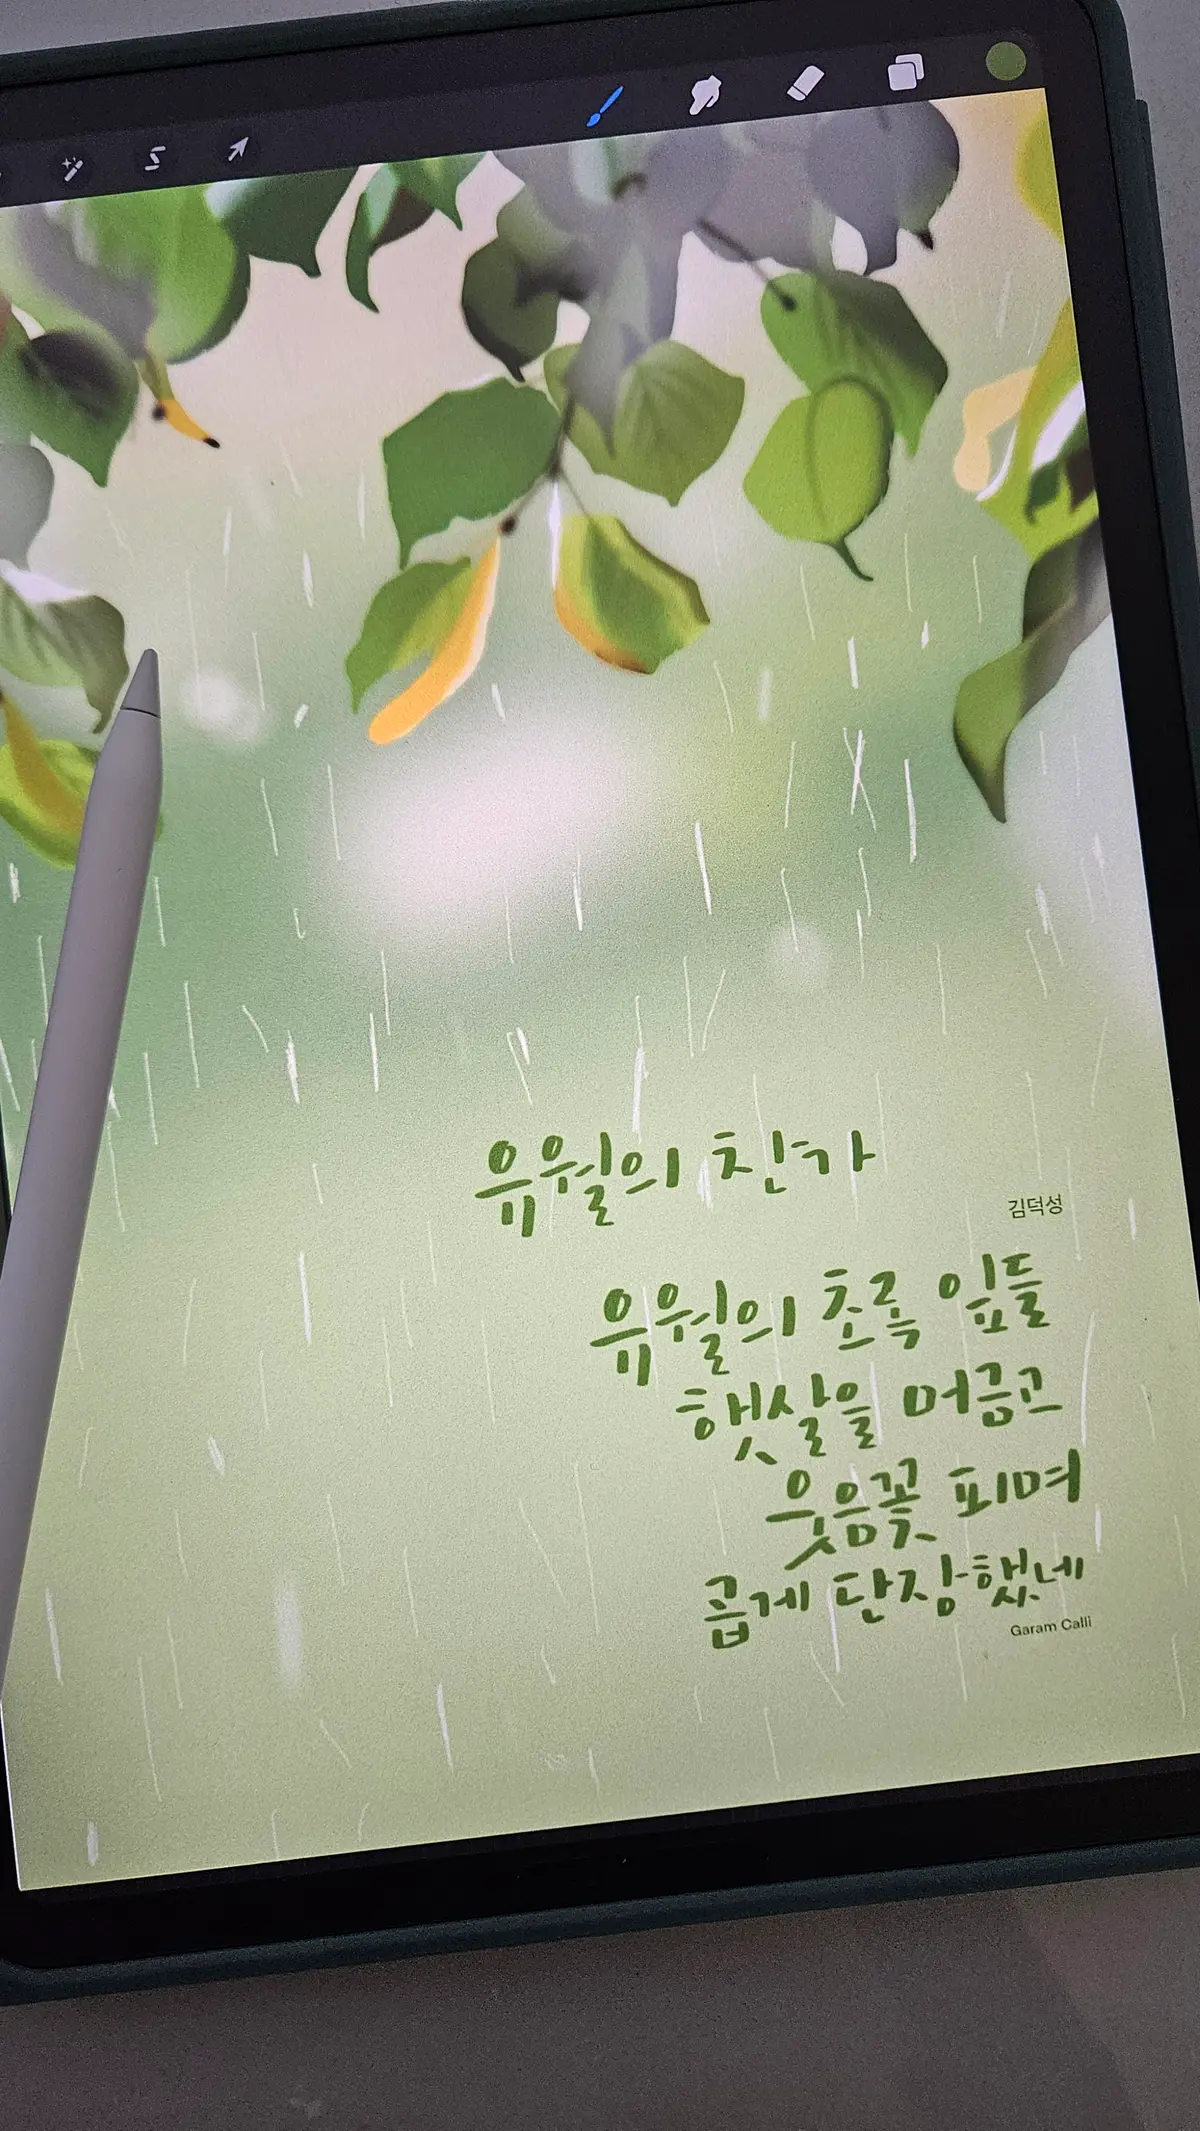 유월의 찬가
김덕성
유월의 초록 잎들
햇살을 머금고
웃음꽃 피며
곱게 단장했네
Garam Calli